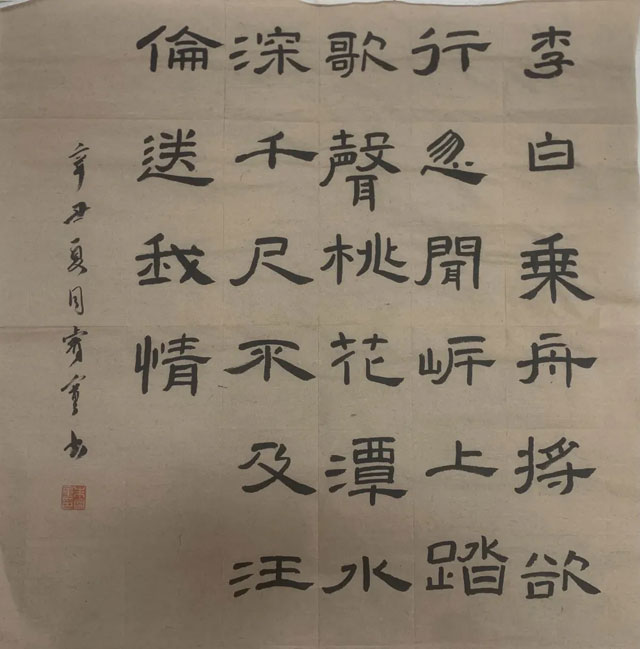 李白乗舟将欲
行忽聞岸上踏
歌聲桃花潭水
深千尺不及汪
倫送我情
辛丑夏月